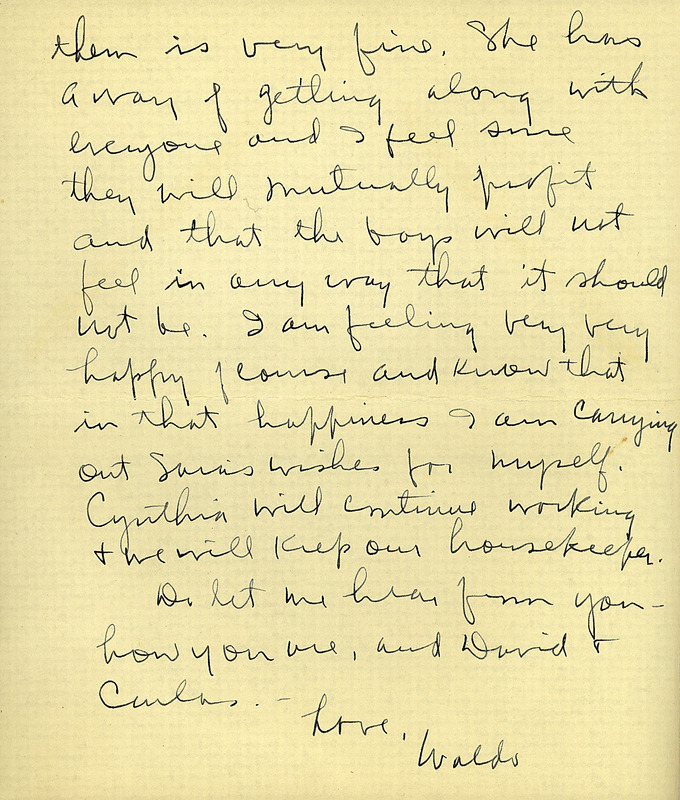 them is very fine. She has
a way of getting along with
everyone and I feel sure
they will mutually profit
and that the boys will not
feel in any way that it should
not be. I am feeling very very
happy of course and know that
in that happiness I am carrying
out Sara's wishes for myself.
Cynthia will continue working
+ we will keep our housekeeper.
Do let me hear from you -
how you are, and David +
Carlos. -
Love,
Waldo